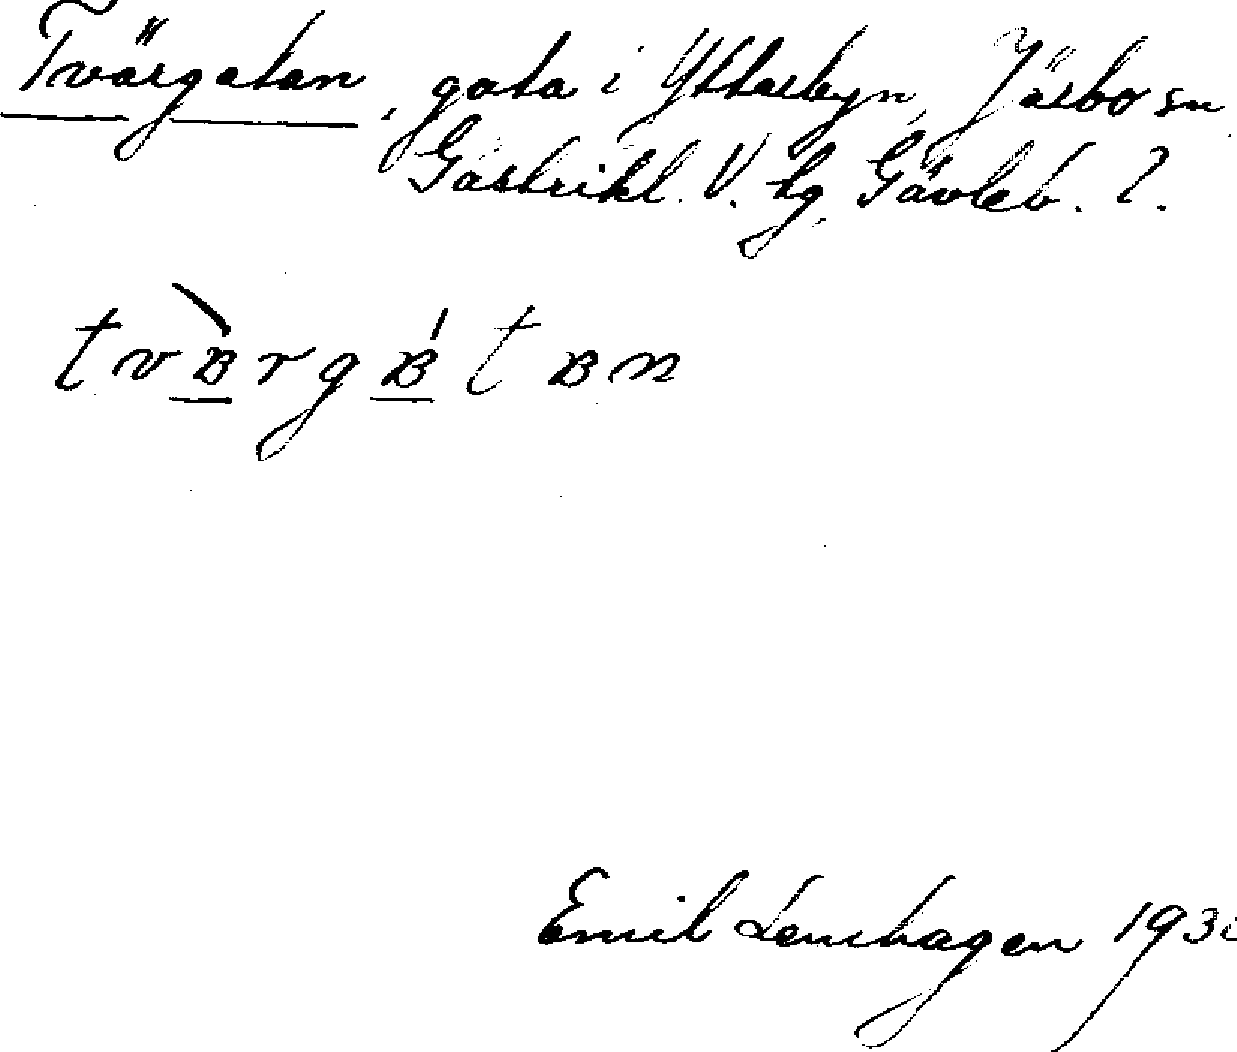 Tvärgatan, gata i Ytterbyn, Järbo sn.
Gästrikl. V. tg, Gävleb. l.
tvärgatan
Emil 193